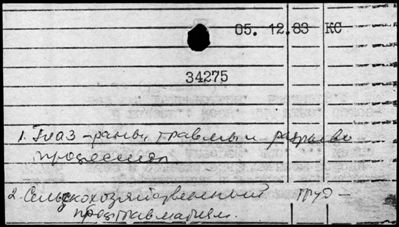 05. 12.83 КС
34275
1. Глаз - раны, травмы и
2. Сельскохозяйственный труд -
травматизм.